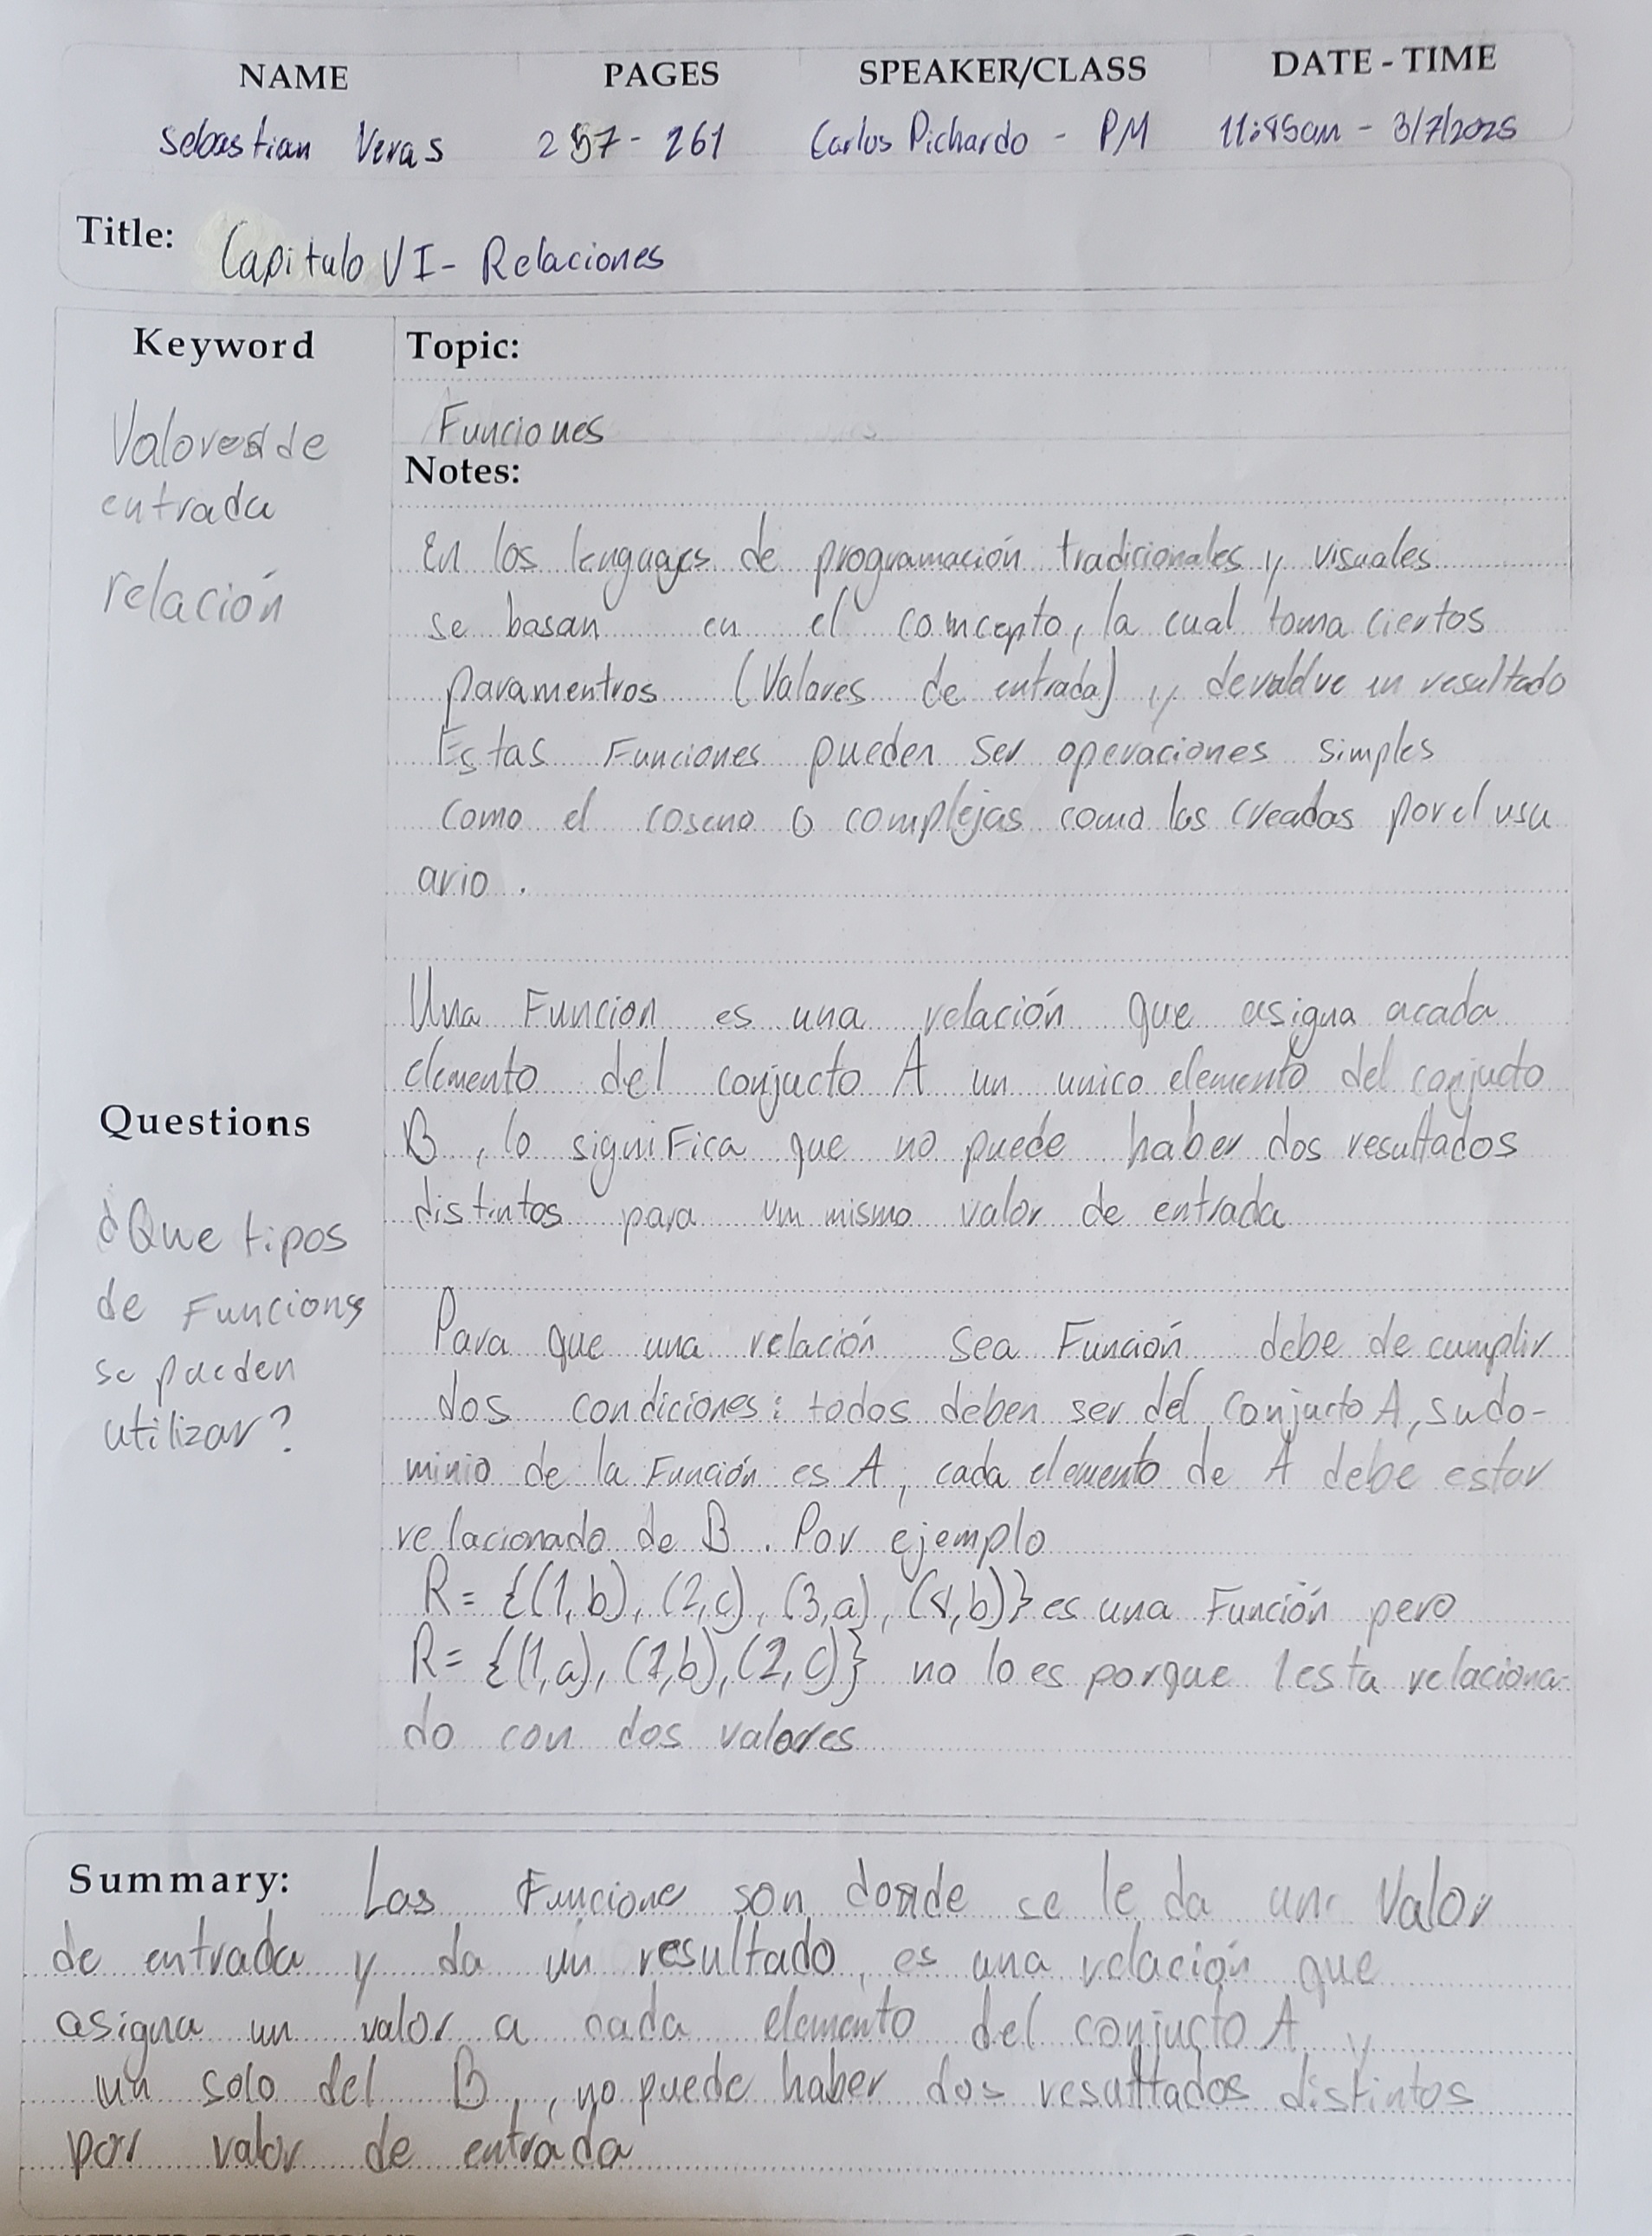 NAME PAGES SPEAKER/CLASS DATE - TIME
Sebastian Veras 257 - 261 Carlos Pichardo - PM 11:45am - 3/7/2025
Title: Capitulo VI - Relaciones
Keyword
Valores de
entrada
relación
Topic:
Funciones
Notes:
En los lenguages de programación tradicionales y visuales
se basan en el comcepto, la cual toma ciertos
paramentros (Valores de entrada) y devuelve un resultado
Estas Funciones pueden ser operaciones simples
como el coseno o complejas como las creadas por el usu
ario.
Una Funcion es una relación que asigna acada
elemento del conjucto A un unico elemento del conjucto
B, lo significa que no puede haber dos resultados
distintos para um mismo valor de entrada
Para que una relación sea Función debe de cumplir
dos condiciones: todos deben ser del conjucto A, su do-
minio de la Función es A, cada elemento de A debe estar
relacionado de B. Por ejemplo
R= {(1,b), (2,c), (3,a), (4,b)} es una Función pero
R= {(1,a), (1,b), (2,c)} no lo es porque 1 esta relaciona-
do con dos valores
Questions
¿Que tipos
de Funcions
se pueden
utilizar?
Summary: Las Funcione son donde se le da un Valor
de entrada y da un resultado, es una relación que
asigna un valor a cada elemento del conjucto A y
un solo del B, no puede haber dos resultados distintos
por valor de entrada